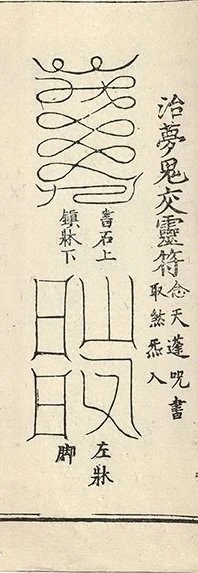 治夢鬼交靈符
念天蓬呪書
取煞炁入
書石上
鎮牀下
左牀
脚